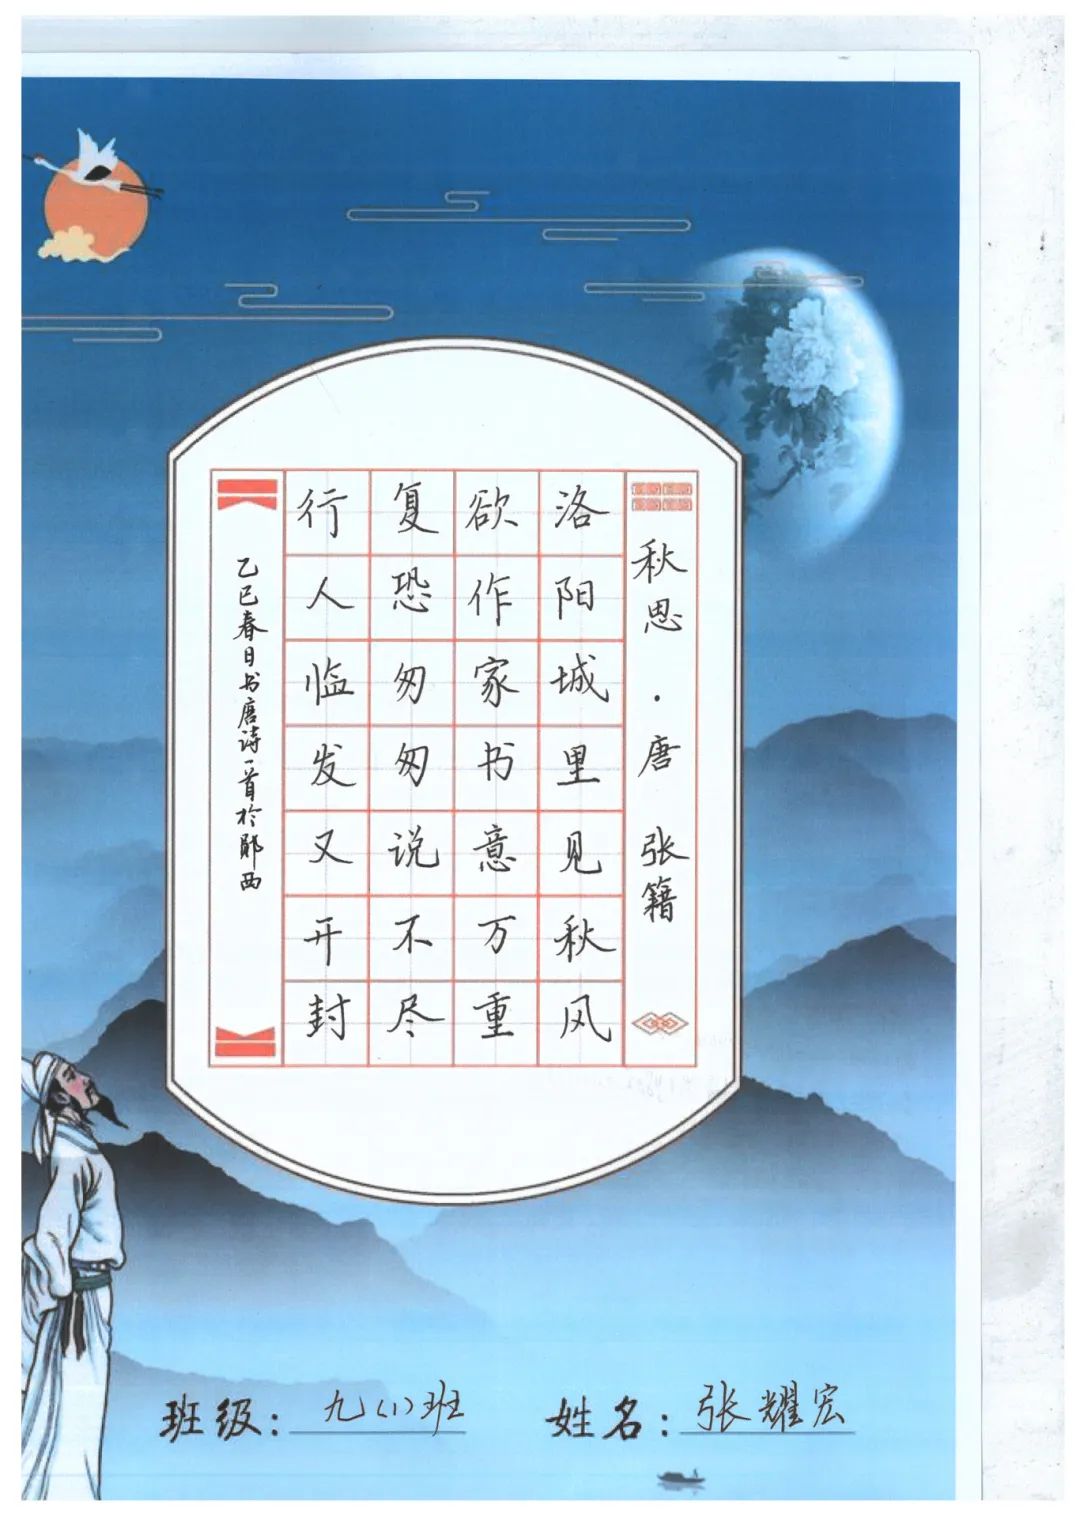 秋思·唐 张籍
洛阳城里见秋风
欲作家书意万重
复恐匆匆说不尽
行人临发又开封
乙巳春日书唐诗一首于郧西
班级：九(1)班
姓名：张耀宏